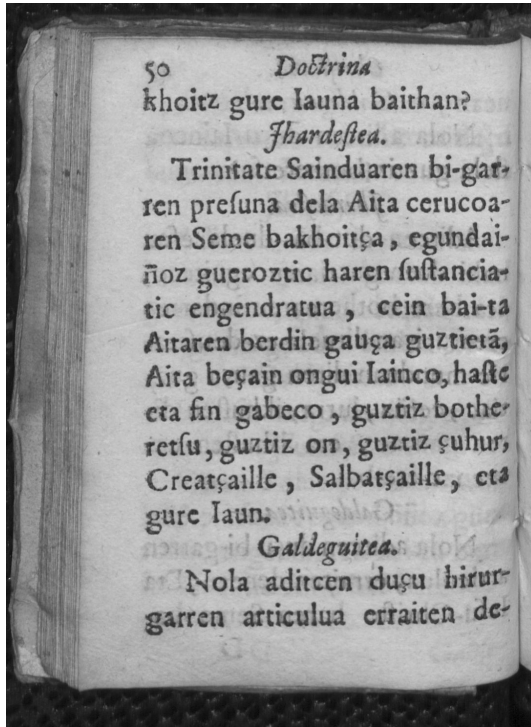 50 Doctrina
khoitz gure Iauna baithan?
Jhardeſtea.
Trinitate Sainduaren bi-gar-
ren preſuna dela Aita cerucoa-
ren Seme bakhoitça, egundai-
ñoz gueroztic haren ſuſtancia-
tic engendratua, cein bai-ta
Aitaren berdin gauça guztietã,
Aita beçain ongui Iainco, haſte
eta fin gabeco, guztiz bothe-
retſu, guztiz on, guztiz çuhur,
Creatçaille, Salbatçaille, eta
gure Iaun.
Galdeguitea.
Nola aditcen duçu hirur-
garren articulua erraiten de-